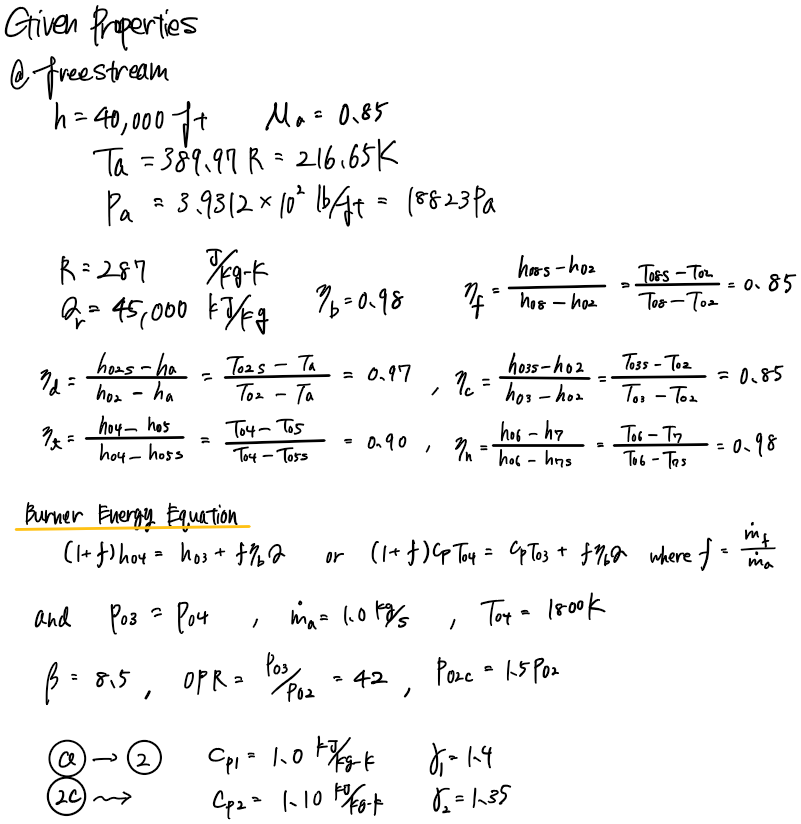 Given Properties
@ freestream
h = 40,000 ft   Ma = 0.85
Ta = 389.97 R = 216.65K
Pa = 3.9312 × 10² lb/ft = 18823Pa
R = 287 J/kg-K
Qr = 45,000 kJ/kg   ηb = 0.98   ηf = (h08s - h02)/(h08 - h02) = (T08s - T02)/(T08 - T02) = 0.85
ηd = (h02s - ha)/(h02 - ha) = (T02s - Ta)/(T02 - Ta) = 0.97 , ηc = (h03s - h02)/(h03 - h02) = (T03s - T02)/(T03 - T02) = 0.85
ηt = (h04 - h05)/(h04 - h05s) = (T04 - T05)/(T04 - T05s) = 0.90 , ηn = (h06 - h7)/(h06 - h7s) = (T06 - T7)/(T06 - T7s) = 0.98
Burner Energy Equation
(1+f)h04 = h03 + fηbQ   or   (1+f)CpT04 = CpT03 + fηbQ   where f = ṁf/ṁa
and   P03 = P04 , ṁa = 1.0 kg/s , T04 = 1800K
β = 8.5 , OPR = P03/P02 = 42 , P02c = 1.5P02
a → 2   Cp1 = 1.0 kJ/kg-K   γ1 = 1.4
2c ⇝   Cp2 = 1.10 kJ/kg-K   γ2 = 1.35